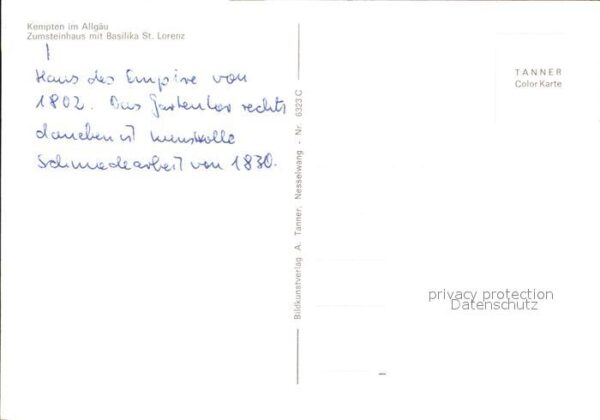 Kempten im Allgäu
Zumsteinhaus mit Basilika St. Lorenz
Haus des Empire von
1802. Das Gartentor rechts
daneben ist kunstvolle
Schmiedearbeit von 1830.
Bildkunstverlag A. Tanner, Nesselwang - Nr. 6323 C
TANNER
Color Karte
privacy protection
Datenschutz